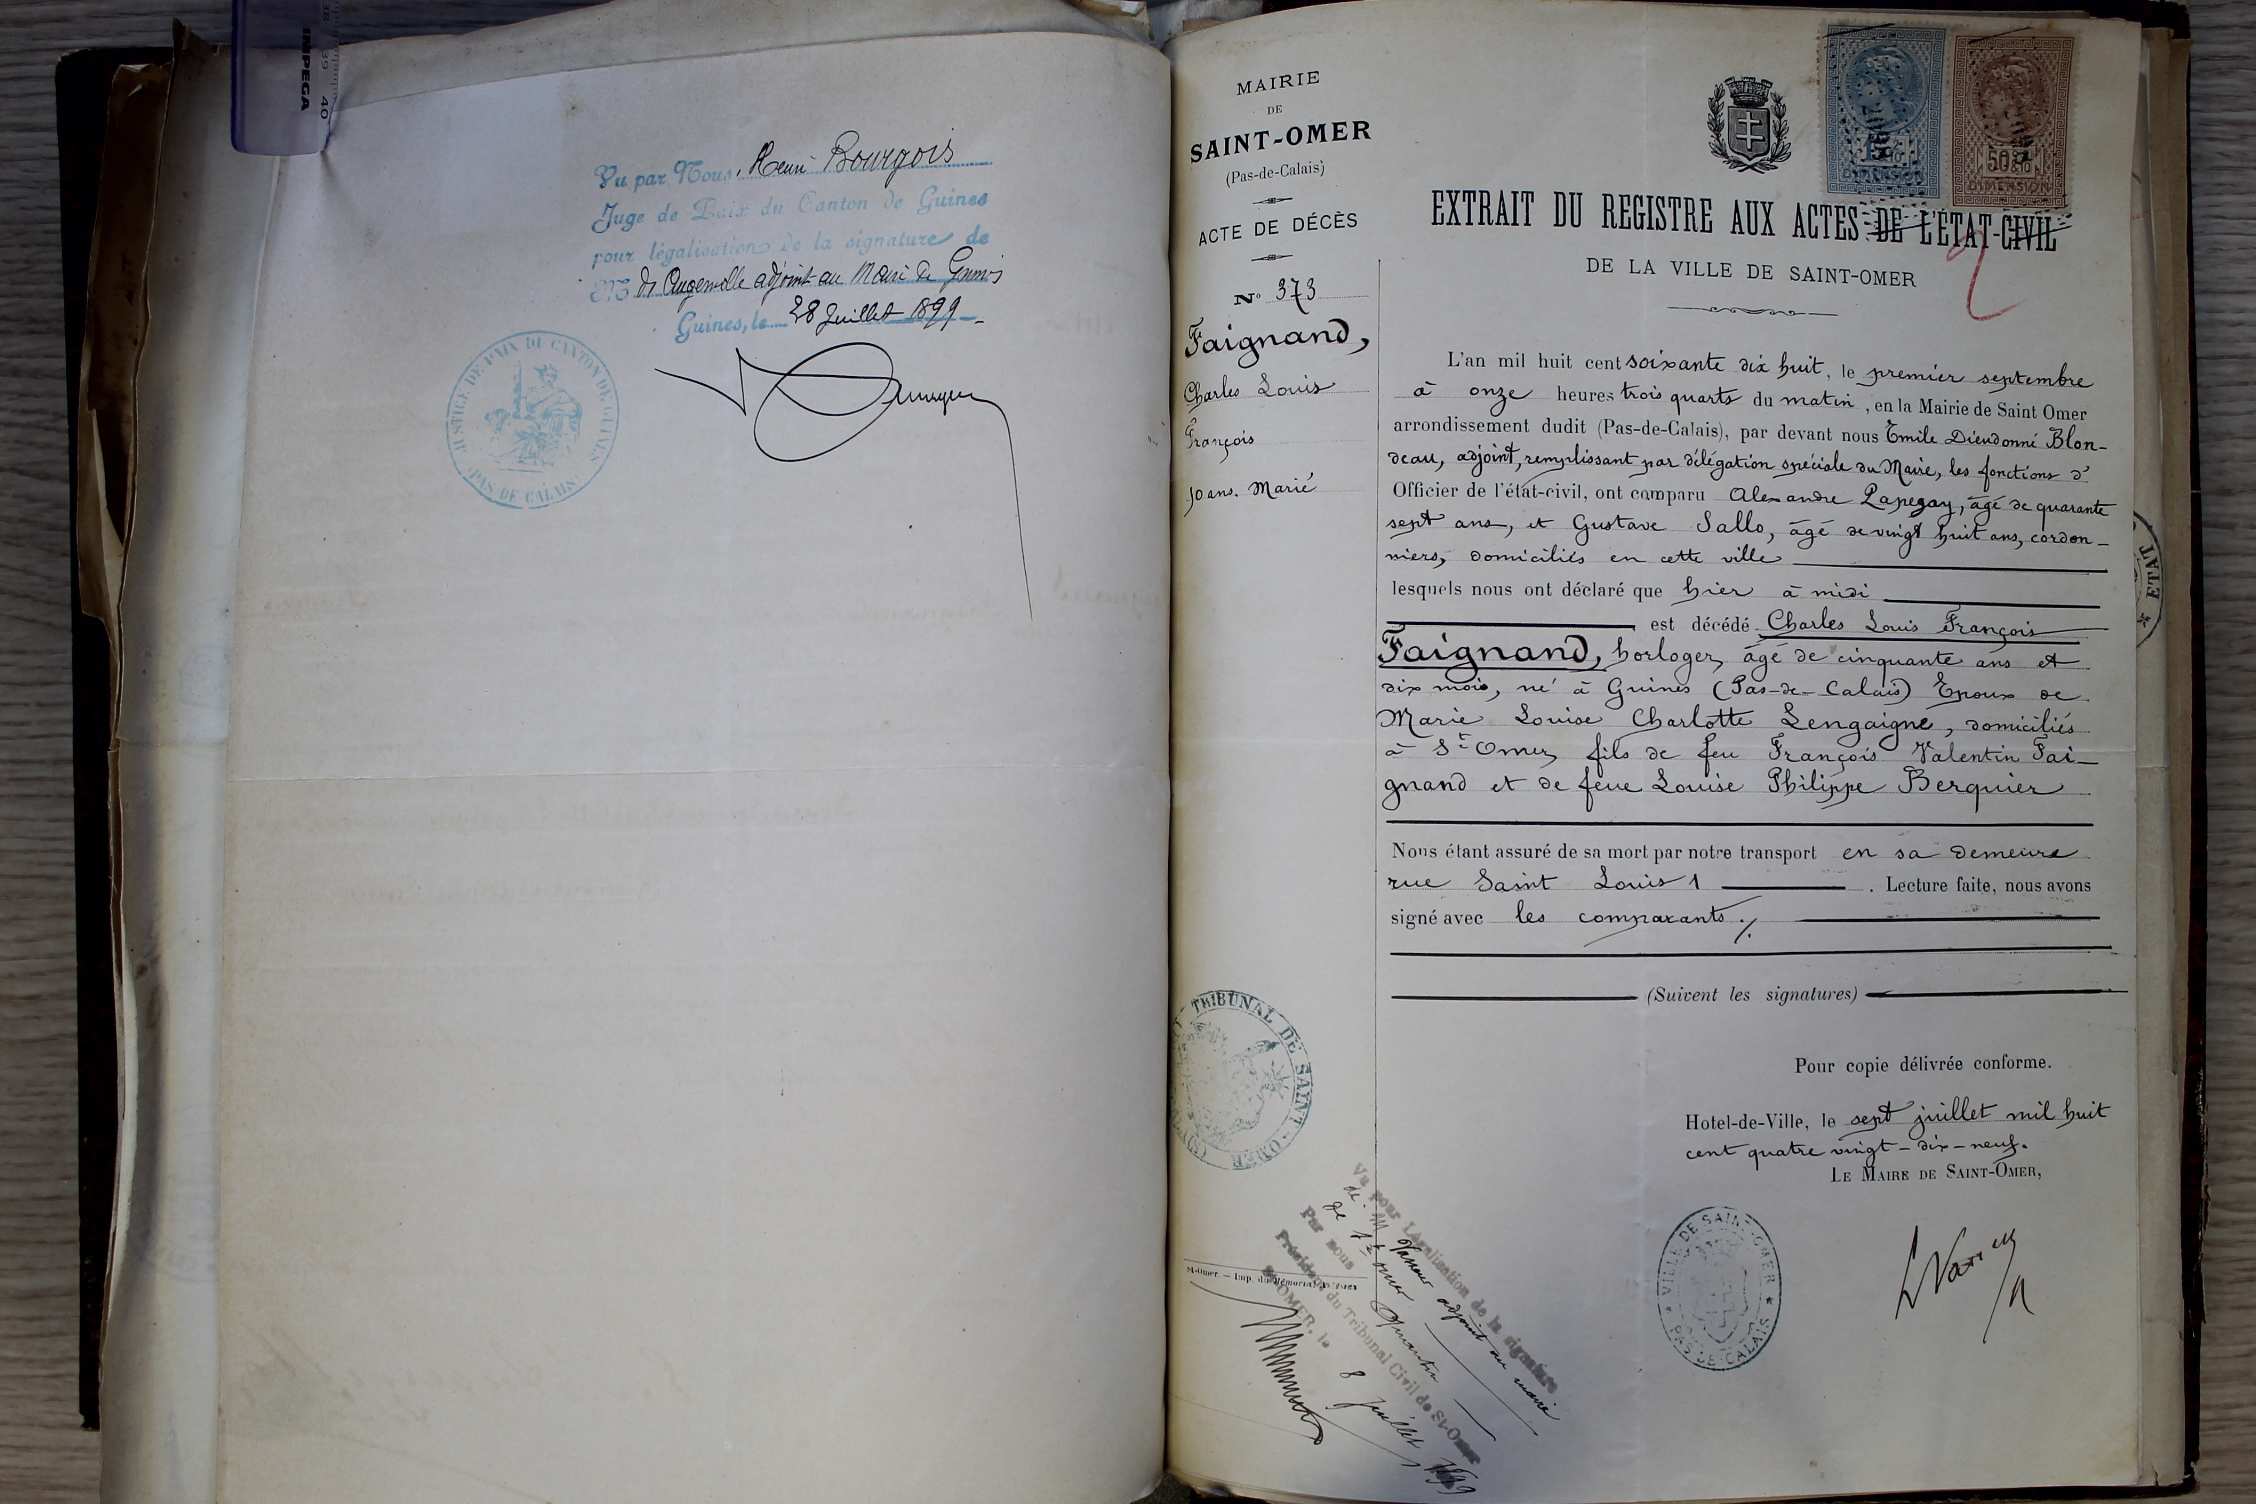 IMPEGA
39 40
Vu par Nous, Henri Bourgois
Juge de Paix du Canton de Guines
pour légalisation de la signature de
M de adjoint au Maire de Guines
Guines, le 28 Juillet 1899
JUSTICE DE PAIX DU CANTON DE GUINES
(PAS DE CALAIS)
MAIRIE
DE
SAINT-OMER
(Pas-de-Calais)
ACTE DE DÉCÈS
N° 373
Faignand,
Charles Louis
François
50 ans. Marié
15
50
DIMENSION
DIMENSION
EXTRAIT DU REGISTRE AUX ACTES DE L'ÉTAT-CIVIL
DE LA VILLE DE SAINT-OMER
L'an mil huit cent soixante dix huit, le premier septembre
à onze heures trois quarts du matin, en la Mairie de Saint Omer
arrondissement dudit (Pas-de-Calais), par devant nous Emile Dieudonné Blon-
deau, adjoint, remplissant par délégation spéciale du Maire, les fonctions d'
Officier de l'état-civil, ont comparu Alexandre Papegay, âgé de quarante
sept ans, et Gustave Sallo, âgé de vingt huit ans, cordon-
niers, domiciliés en cette ville
lesquels nous ont déclaré que hier à midi
est décédé Charles Louis François
Faignand, horloger, âgé de cinquante ans et
dix mois, né à Guines (Pas-de-Calais) Epoux de
Marie Louise Charlotte Lengaigne, domiciliés
à St Omer, fils de feu François Valentin Fai-
gnand et de feue Louise Philippe Berquier
Nous étant assuré de sa mort par notre transport en sa demeure
rue Saint Louis 1 . Lecture faite, nous avons
signé avec les comparants ./.
(Suivent les signatures)
Pour copie délivrée conforme.
Hotel-de-Ville, le sept juillet mil huit
cent quatre vingt-dix-neuf.
LE MAIRE DE SAINT-OMER,
VILLE DE SAINT-OMER
PAS DE CALAIS
TRIBUNAL DE SAINT-OMER
ETAT
Vu pour Légalisation de la signature
de M adjoint au maire
de St Omer
Par nous Quentin
Président du Tribunal Civil de St-Omer
St-OMER, le 8 Juillet 1899
St-Omer. — Imp. du Mémorial